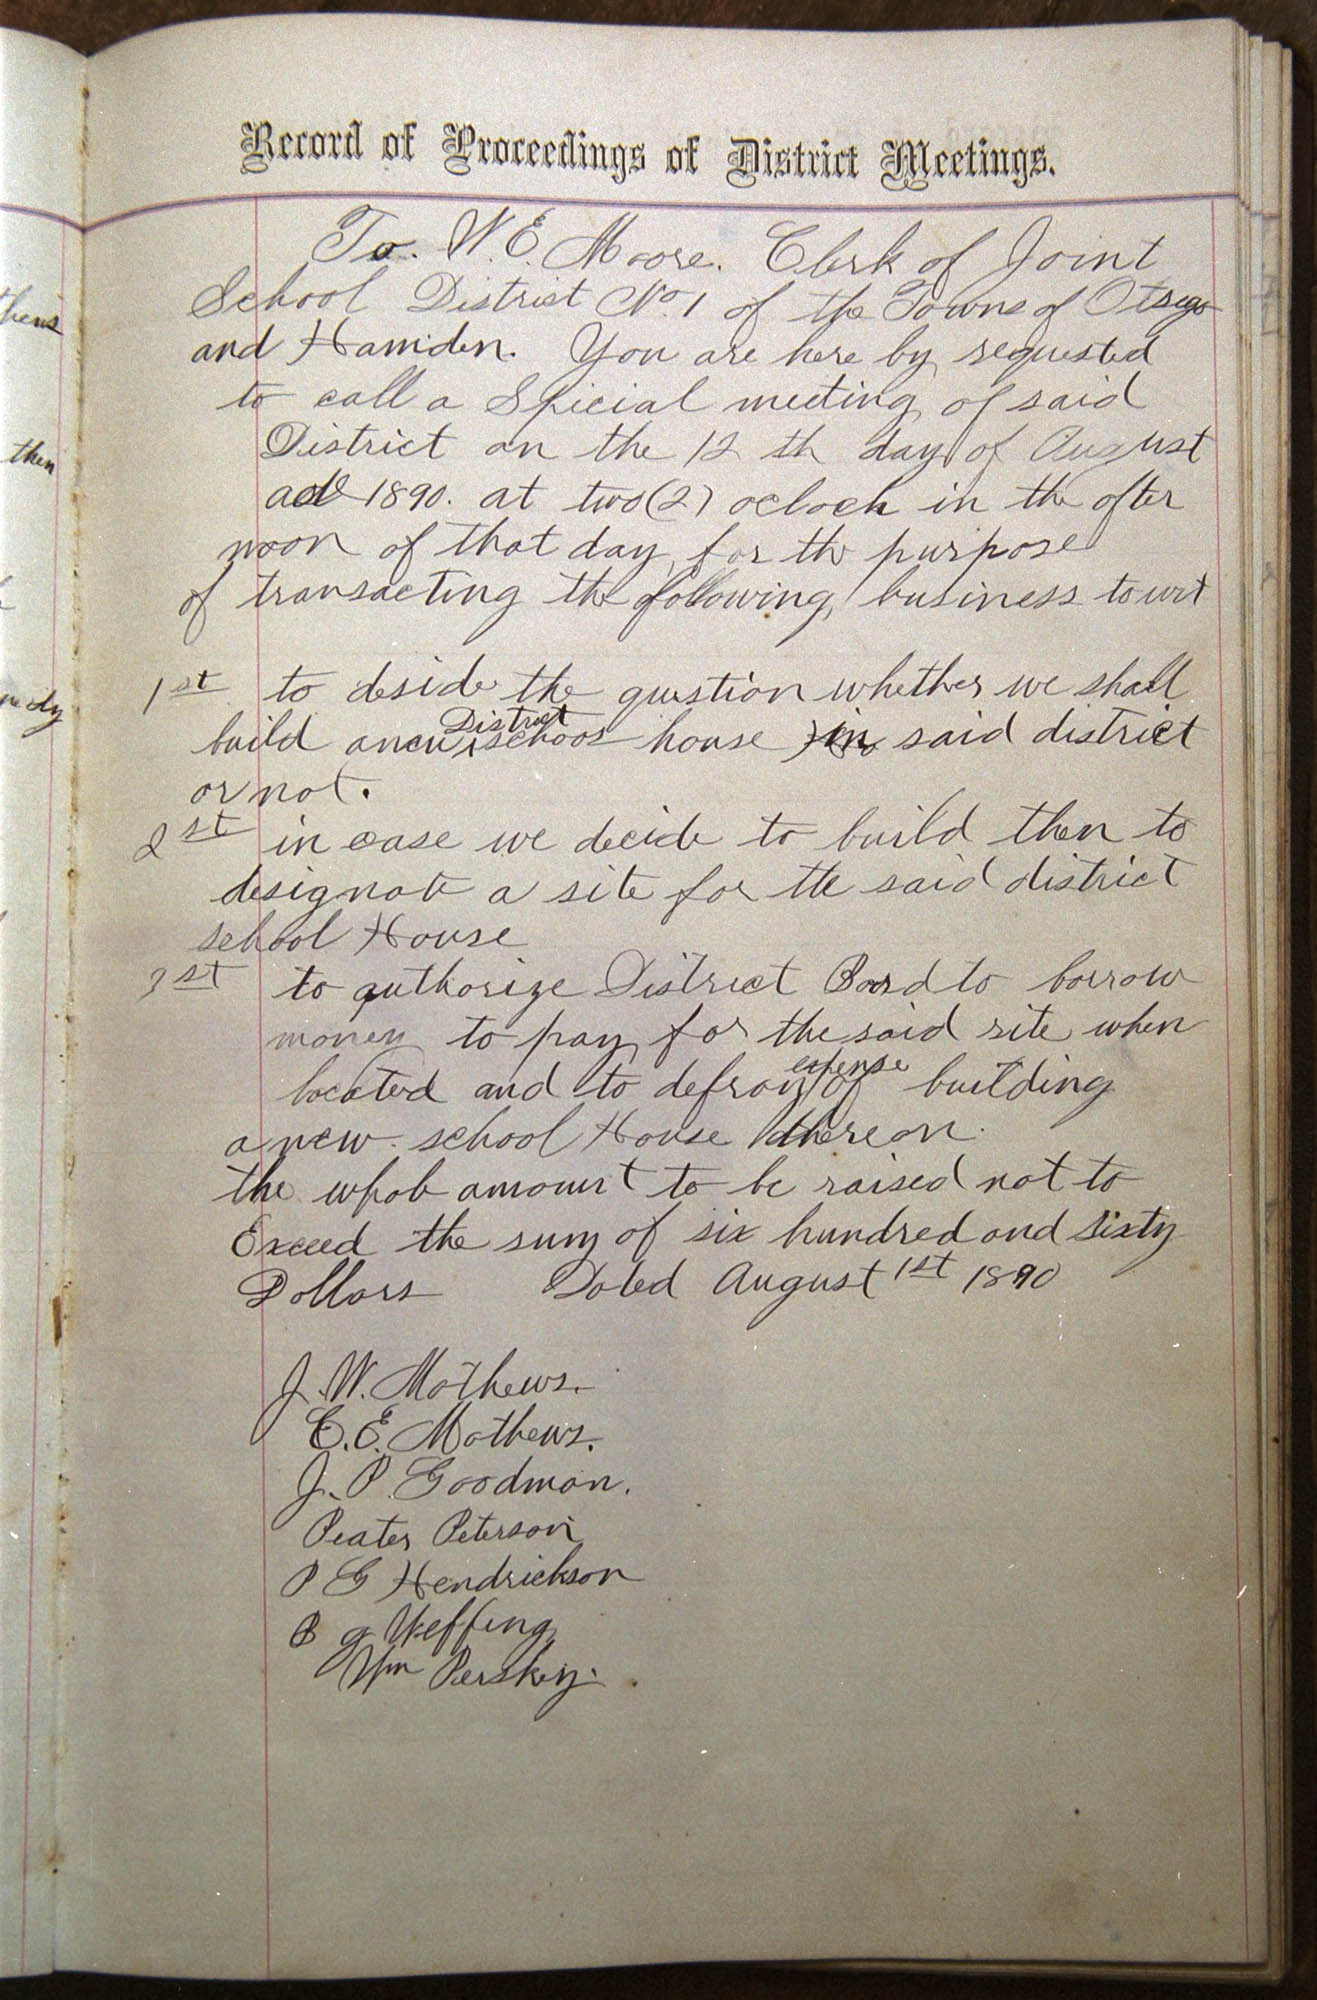 thens
then
Record of Proceedings of District Meetings.
To. W. E Moore. Clerk of Joint
School District No. 1 of the Towns of Otsego
and Hamden. You are here by requested
to call a Spicial meeting of said
District on the 12 th day of August
ad 1890. at two (2) oclock in the after
noon of that day, for the purpose
of transacting the following, business to wit
1st to deside the question whether we shall
District
build a new school house in said district
or not.
2st in case we decide to build then to
designate a site for the said district
school House
3st to authorize District Bord to borrow
money to pay for the said site when
expense
located and to defray of building
a new school House thereon.
the whole amount to be raised not to
Exceed the sum of six hundred and sixty
Dollars Dated August 1st 1890
J. W. Mathews.
C. E. Mathews.
J. P. Goodman.
Peater Peterson
P G Hendrickson
B g Weffing
Wm Perskey.